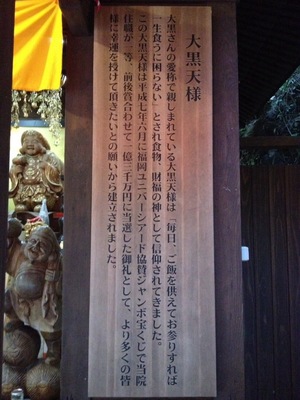 大黒天様
大黒さんの愛称で親しまれている大黒天様は「毎日、ご飯を供えてお参りすれば
一生食うに困らない」とされ食物、財福の神として信仰されてきました。
この大黒天様は平成七年六月に福岡ユニバーシアード協賛ジャンボ宝くじで当院
住職が一等、前後賞合わせて一億三千万円に当選した御礼として、より多くの皆
様に幸運を授けて頂きたいとの願いから建立されました。